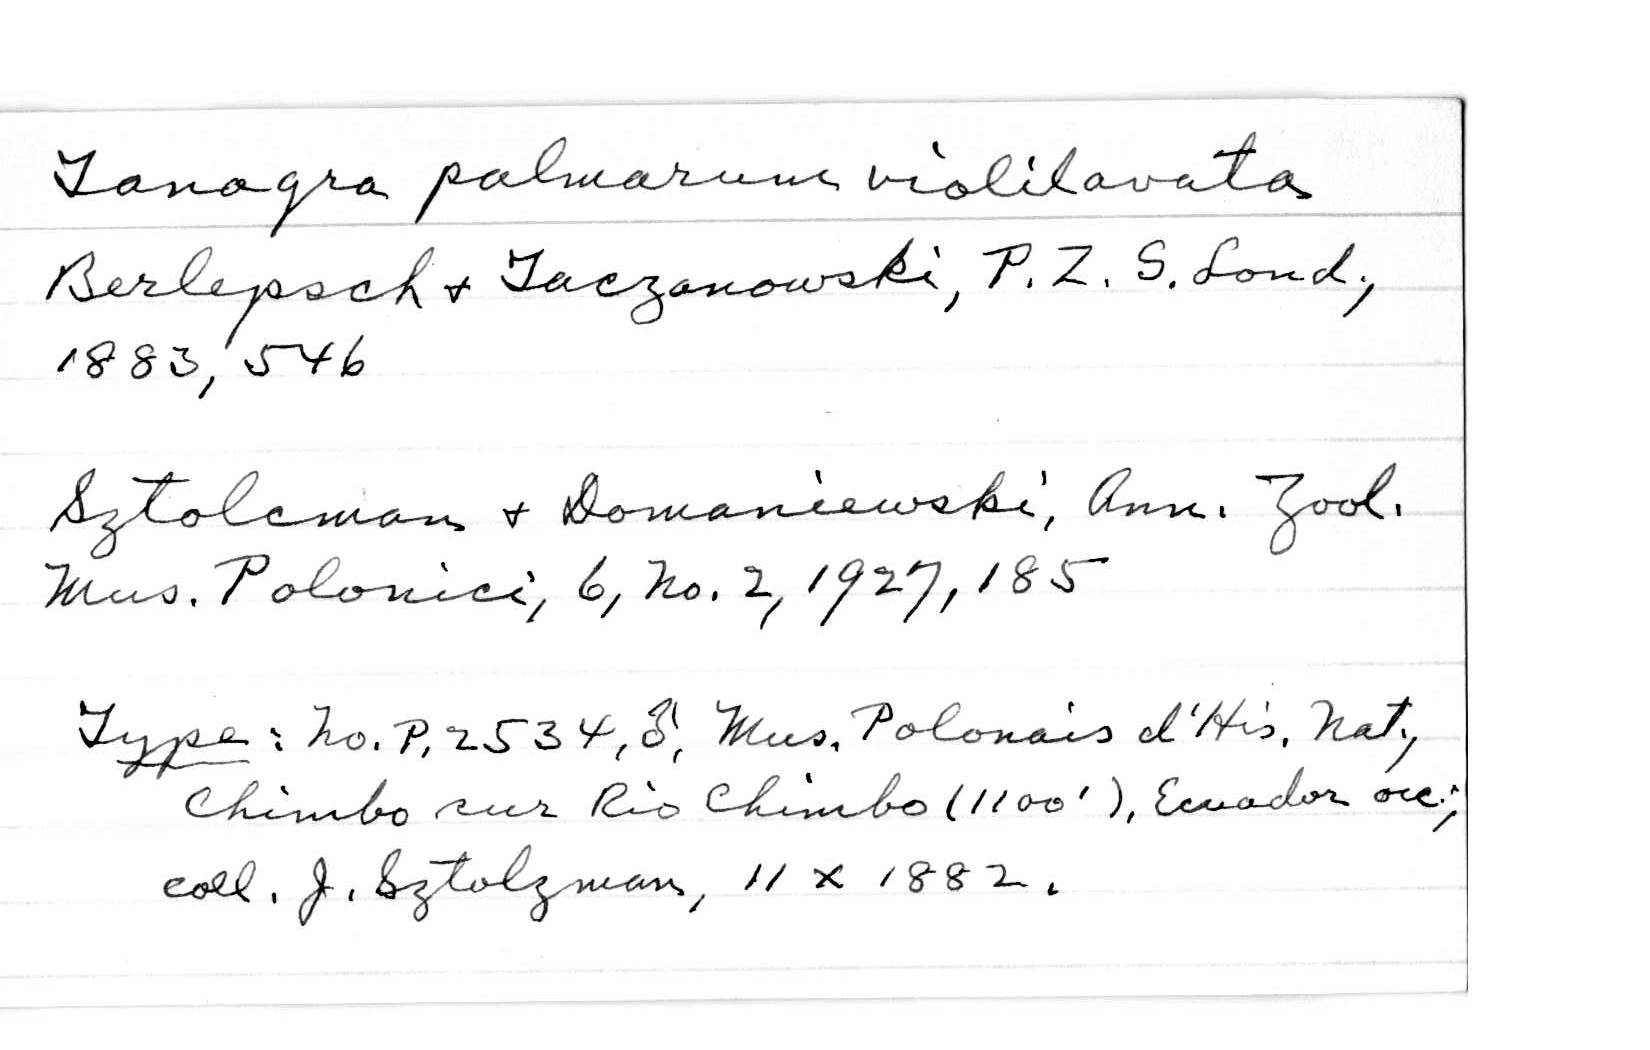 Tanagra palmarum violilavata
Berlepsch & Taczanowski, P. Z. S. Lond.,
1883, 546
Sztolcman & Domaniewski, Ann. Zool.
Mus. Polonici, 6, No. 2, 1927, 185
Type: No. P. 2534, ♂, Mus. Polonais d'His. Nat.,
Chimbo sur Rio Chimbo (1100'), Ecuador occ.;
coll. J. Sztolzman, 11 X 1882.